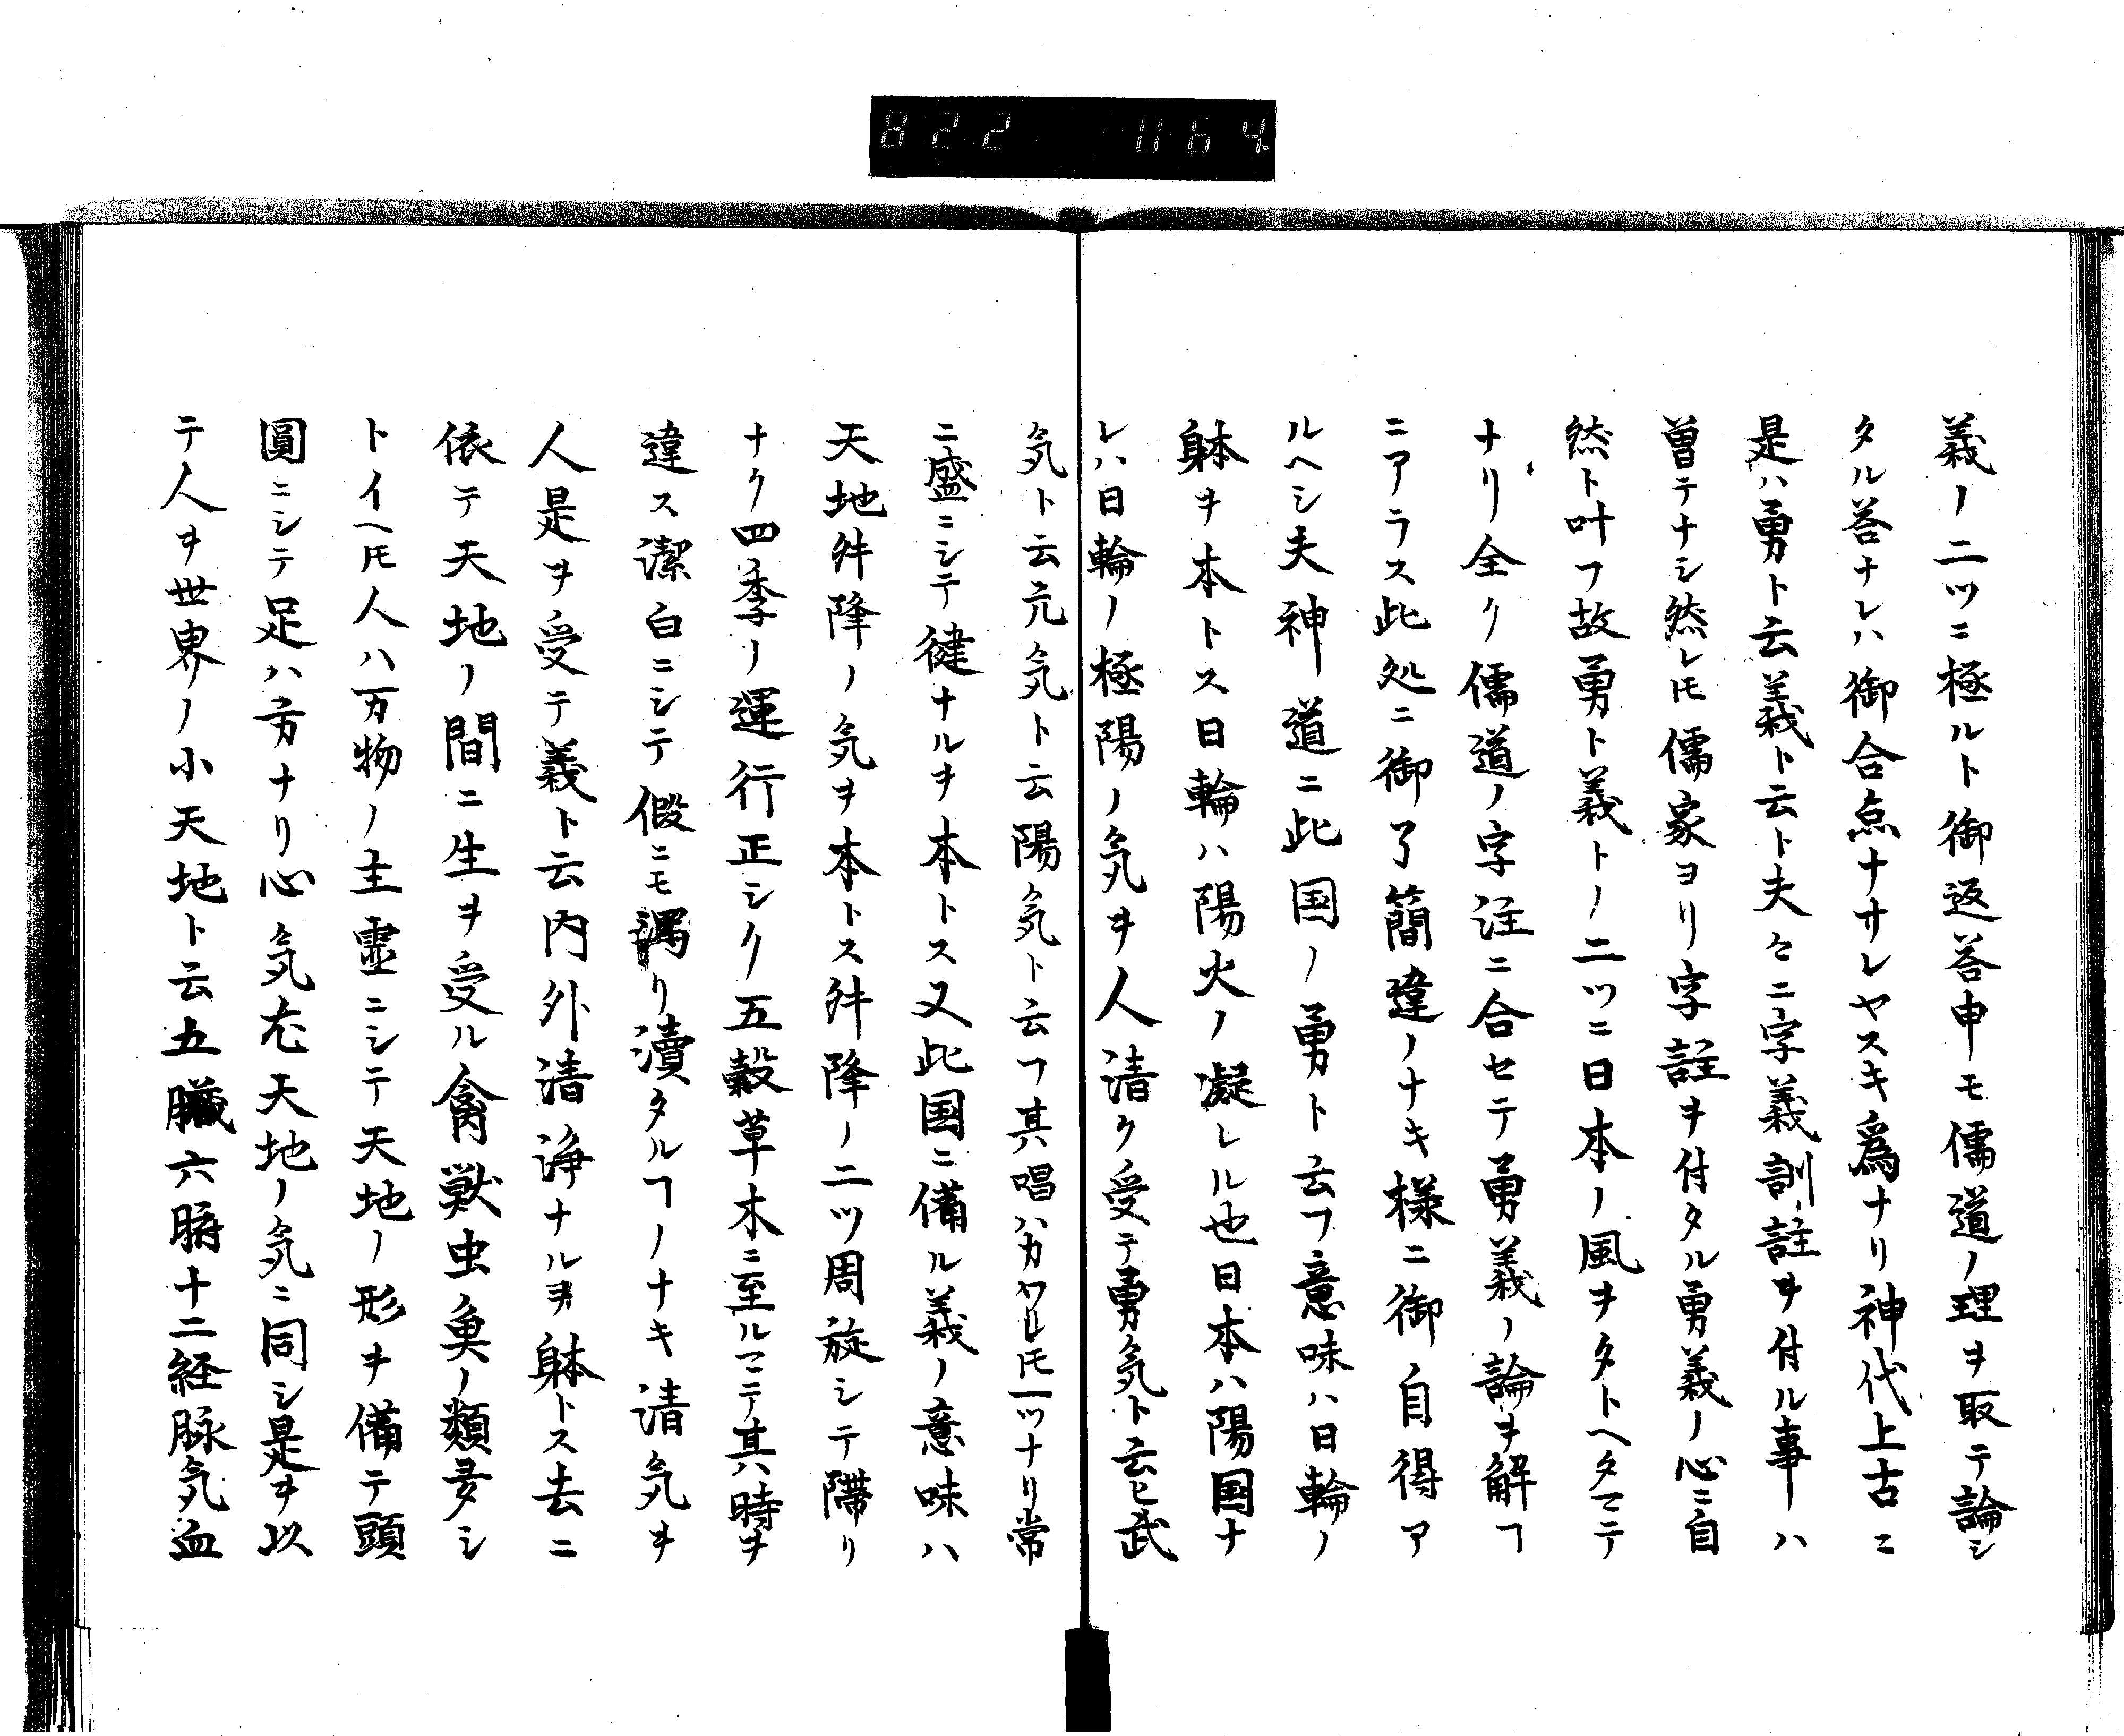 822 064
義ノ二ツニ極ルト御返答申モ儒道ノ理ヲ取テ論シ
タル答ナレハ御合点ナサレヤスキ為ナリ神代上古ニ
是ハ勇ト云義ト云ト夫々ニ字義訓註ヲ付ル事ハ
曽テナシ然レ𪜈儒家ヨリ字註ヲ付タル勇義ノ心ニ自
然ト叶フ故勇ト義トノ二ツニ日本ノ風ヲタトヘタマテ
ナリ全ク儒道ノ字注ニ合セテ勇義ノ論ヲ解ヿ
ニアラス此処ニ御了簡違ノナキ様ニ御自得ア
ルヘシ夫神道ニ此国ノ勇ト云フ意味ハ日輪ノ
躰ヲ本トス日輪ハ陽火ノ凝レル也日本ハ陽国ナ
レハ日輪ノ極陽ノ気ヲ人清ク受テ勇気ト云ヒ武
気ト云元気ト云陽気ト云フ其唱ハカワレ𪜈一ツナリ常
ニ盛ニシテ健ナルヲ本トス又此国ニ備ル義ノ意味ハ
天地舛降ノ気ヲ本トス舛降ノ二ツ周旋シテ滞リ
ナク四季ノ運行正シク五穀草木ニ至ルマテ其時ヲ
違ス潔白ニシテ假ニモ濁リ瀆タルヿノナキ清気ヲ
人是ヲ受テ義ト云内外清浄ナルヲ躰トス去ニ
依テ天地ノ間ニ生ヲ受ル禽獣虫魚ノ類多シ
トイヘ𪜈人ハ万物ノ主霊ニシテ天地ノ形ヲ備テ頭
圓ニシテ足ハ方ナリ心気尤天地ノ気ニ同シ是ヲ以
テ人ヲ世界ノ小天地ト云五臓六腑十二経脉気血